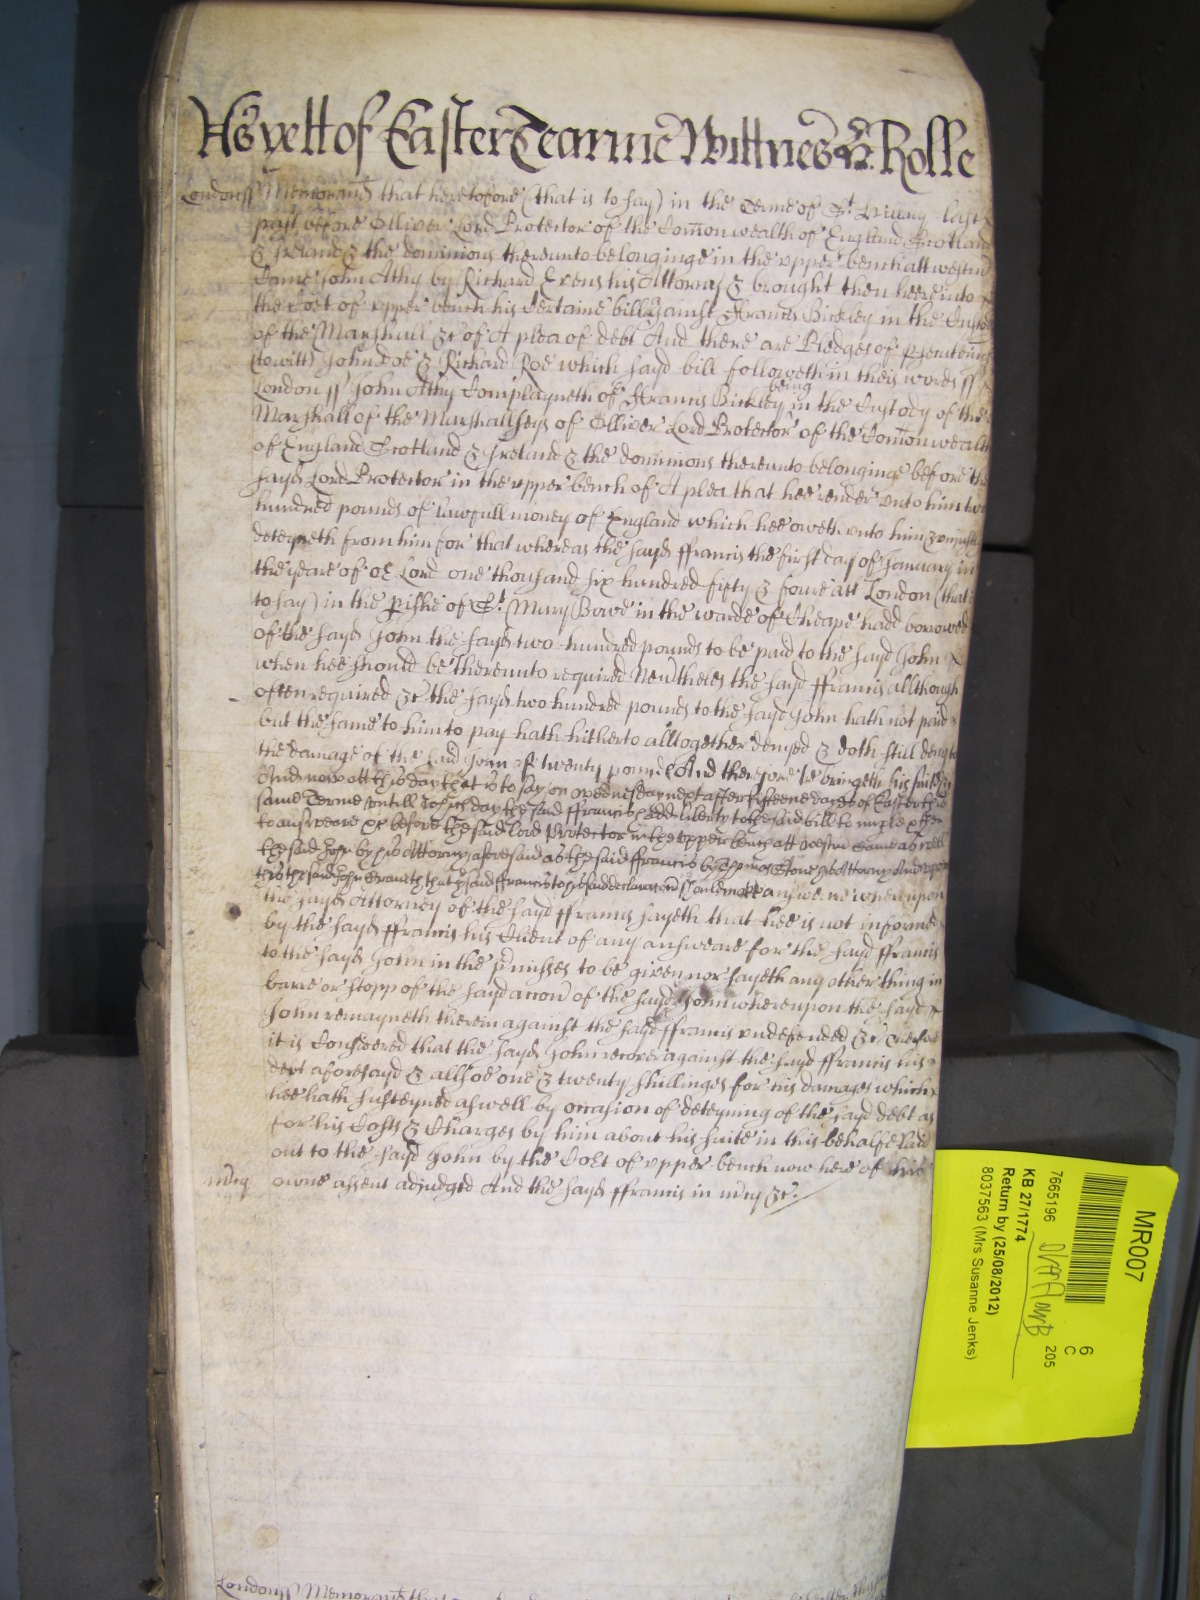 As yett of Easter Tearme Wittnes H. Rolle
London ss Memorand that heretofore (that is to say) in the Terme of St Hillary last
past before Olliver Lord Protector of the Comonwealth of England Scotland
& Ireland & the dominions thereunto belonginge in the upper bench att westm
Came John Athy by Richard Evens his Attorny & brought then heere into
the Cort of upper bench his Certaine bill against Francis Bickley in the Custody
of the Marshall &c of A plea of debt And there are Pledges of prsecuting
(to witt) John Doe & Richard Roe which sayd bill followeth in theis words ss
London ss John Athy Complayneth of Francis Bickley being in the Custody of the
Marshall of the Marshallseys of Olliver Lord Protector of the Comonwealth
of England Scotland & Ireland & the dominions thereunto belonginge before the
sayd Lord Protector in the upper bench of A plea that hee render unto him two
hundred pounds of lawfull money of England which hee oweth unto him & unjustly
deteyneth from him for that whereas the sayd ffrancis the first day of January in
the yeare of or Lord one thousand six hundred fifty & foure att London (that is
to say) in the pishe of St Mary Bowe in the warde of Cheape hadd borowed
of the sayd John the sayd two hundred pounds to be paid to the sayd John
when hee should be thereunto required Nevtheles the sayd ffrancis allthough
often required &c the sayd two hundred pounds to the sayd John hath not paid
but the same to him to pay hath hitherto alltogether denyed & doth still deny to
the damage of the said John of twenty pounds And therefore he bringeth his suite &c
And now att this day that is to say on wednesday next after fifteene dayes of Easter this
same Terme untill which day the said ffrancis hadd liberty to the said bill to imple & then
to answeare &c before the said Lord Protector in the upper bench att westm came as well
the said John by his Attorny aforesaid as the said ffrancis by Thomas Stone his Attorny And upon
this the said John Craveth that the said ffrancis to his said declaracon should make answeare whereupon
the sayd Attorney of the sayd ffrancis sayeth that hee is not informed
by the sayd ffrancis his Client of any answeare for the sayd ffrancis
to the sayd John in the prmisses to be given nor sayeth any other thing in
barre or stopp of the sayd accon of the sayd John whereupon the sayd
John remayneth therein against the sayd ffrancis undefended &c Therfore
it is Considered that the sayd John recover against the sayd ffrancis his
debt aforesayd & allsoe one & twenty shillinges for his damages which
hee hath susteyned aswell by occasion of deteyning of the sayd debt as
for his Costs & Charges by him about his suite in this behalfe laid
out to the sayd John by the Cort of upper bench now here of his
mcy owne assent adjudged And the sayd ffrancis in mcy &c
London ss Memorand that
MR007
6
C
205
7665196
KB 27/1774
Return by (25/08/2012)
8037563 (Mrs Susanne Jenks)